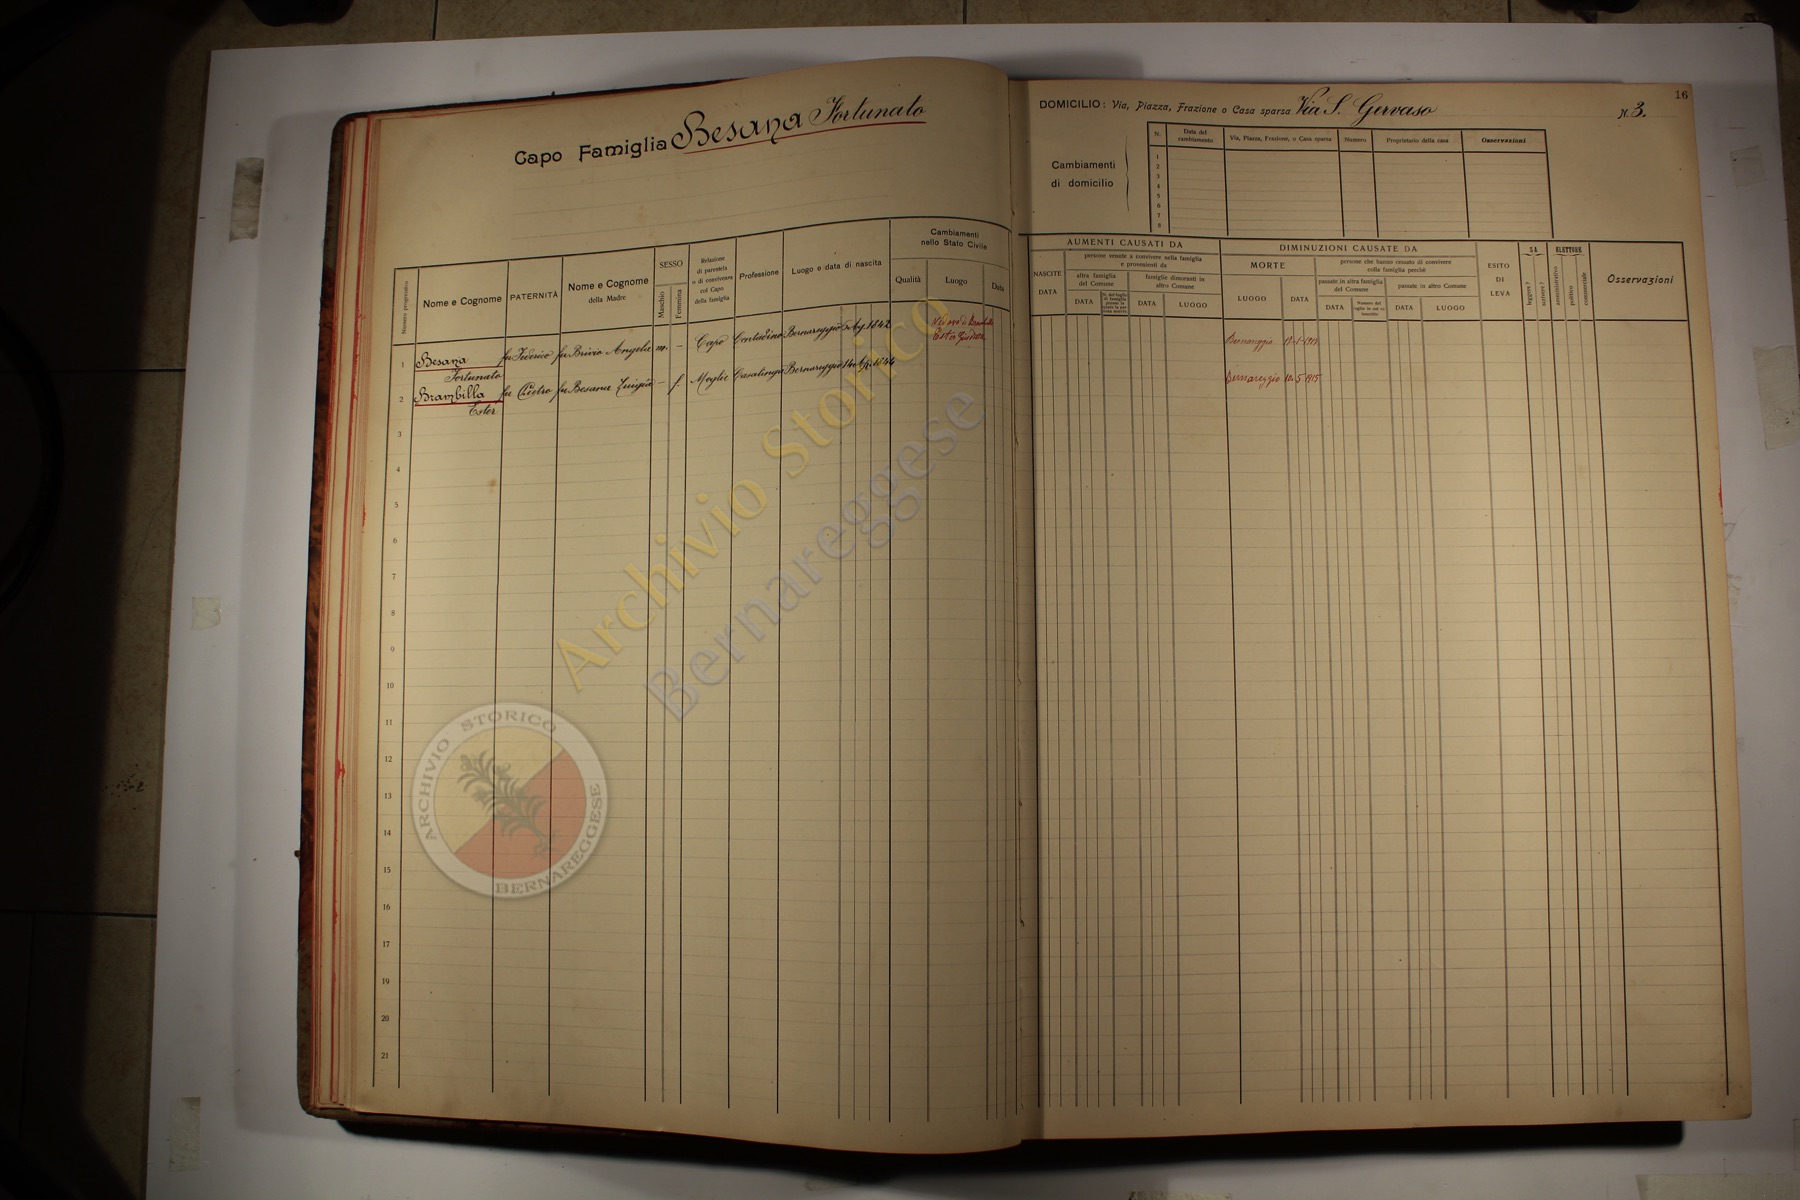 Capo Famiglia Besana Fortunato
16
DOMICILIO: Via, Piazza, Frazione o Casa sparsa Via S. Gervaso N. 3.
Cambiamenti
di domicilio
N. Data del cambiamento Via, Piazza, Frazione, o Casa sparsa Numero Proprietario della casa Osservazioni
1
2
3
4
5
6
7
8
Numero progressivo
Nome e Cognome
PATERNITÀ
Nome e Cognome
della Madre
SESSO
Maschio
Femmina
Relazione
di parentela
o di convivenza
col Capo
della famiglia
Professione
Luogo e data di nascita
Cambiamenti
nello Stato Civile
Qualità Luogo Data
NASCITE
DATA
AUMENTI CAUSATI DA
persone venute a convivere nella famiglia
e provenienti da
altra famiglia
del Comune
DATA
famiglie dimoranti in
altro Comune
DATA LUOGO
DIMINUZIONI CAUSATE DA
MORTE
LUOGO DATA
persone che hanno cessato di convivere
colla famiglia perchè
passate in altra famiglia
del Comune
DATA
passate in altro Comune
DATA LUOGO
ESITO
DI
LEVA
SA
leggere?
scrivere?
ELETTORE
amministrativo
politico
commerciale
Osservazioni
1 Besana fu Federico fu Brivio Angela m. – Capo Contadino Bernareggio 5 Ag. 1842
Fortunato
Bernareggio
2 Brambilla fu Pietro fu Besana Luigia – f. Moglie Casalinga Bernareggio 1844
Ester
Bernareggio 10. 5 1915
3
4
5
6
7
8
9
10
11
12
13
14
15
16
17
18
19
20
21
Archivio Storico
Bernareggese
ARCHIVIO STORICO
BERNAREGGESE